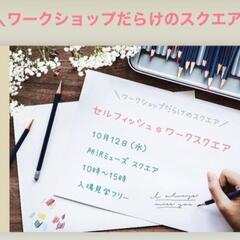 ＼ワークショップだらけのスクエア
＼ワークショップだらけのスクエア／
セルフィッシュ＊ワークスクエア
10月12日(水)
所沢ミューズ スクエア
10時〜15時
入場見学フリー
I always
miss you